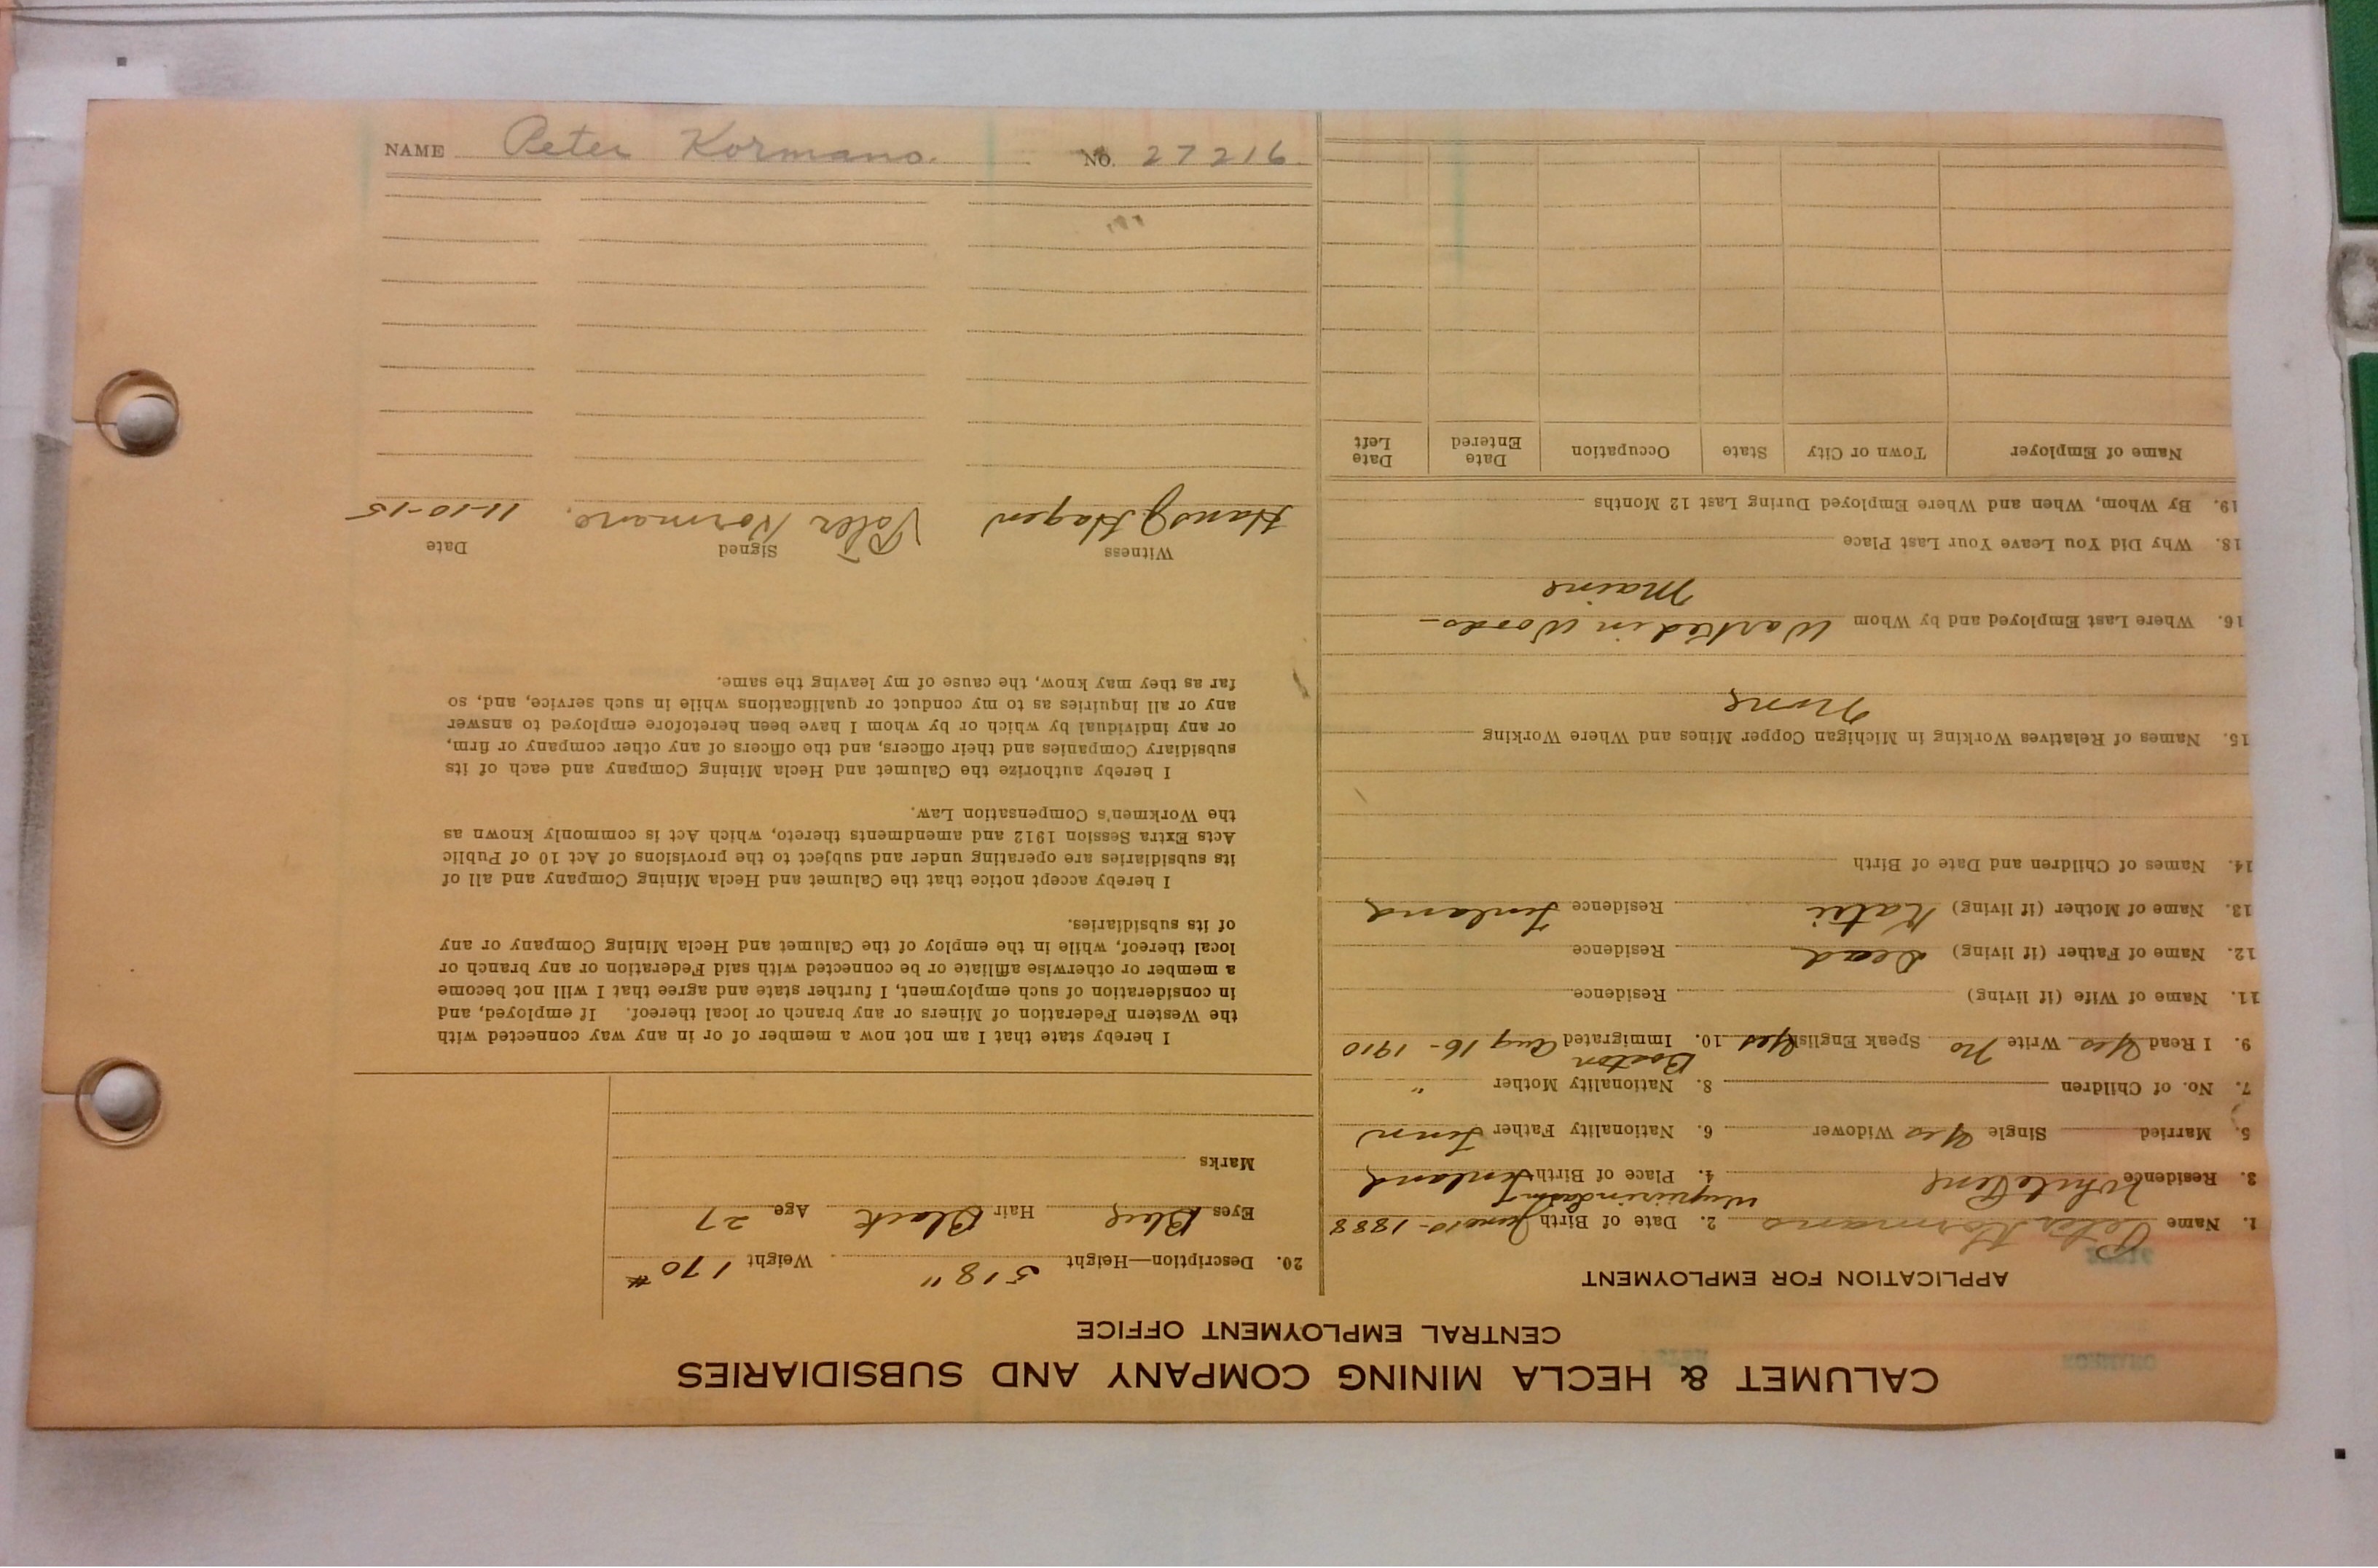 CALUMET & HECLA MINING COMPANY AND SUBSIDIARIES
CENTRAL EMPLOYMENT OFFICE
APPLICATION FOR EMPLOYMENT
1. Name Peter Kormano 2. Date of Birth June 10-1888
3. Residence White Pine 4. Place of Birth Finland
5. Married Single Yes Widower 6. Nationality Father Finn
7. No. of Children 8. Nationality Mother "
Boston
9. I Read Yes Write No Speak English Yes 10. Immigrated Aug 16-1910
11. Name of Wife (if living) Residence
12. Name of Father (if living) Dead Residence
13. Name of Mother (if living) Residence Finland
14. Names of Children and Date of Birth
15. Names of Relatives Working in Michigan Copper Mines and Where Working
None
16. Where Last Employed and by Whom Worked in Woods-
Maine
18. Why Did You Leave Your Last Place
19. By Whom, When and Where Employed During Last 12 Months
Name of Employer Town or City State Occupation Date Entered Date Left
20. Description—Height 5' 8" Weight 170 #
Eyes Blue Hair Black Age 27
Marks
I hereby state that I am not now a member of or in any way connected with
the Western Federation of Miners or any branch or local thereof. If employed, and
in consideration of such employment, I further state and agree that I will not become
a member or otherwise affiliate or be connected with said Federation or any branch or
local thereof, while in the employ of the Calumet and Hecla Mining Company or any
of its subsidiaries.
I hereby accept notice that the Calumet and Hecla Mining Company and all of
its subsidiaries are operating under and subject to the provisions of Act 10 of Public
Acts Extra Session 1912 and amendments thereto, which Act is commonly known as
the Workmen's Compensation Law.
I hereby authorize the Calumet and Hecla Mining Company and each of its
subsidiary Companies and their officers, and the officers of any other company or firm,
or any individual by which or by whom I have been heretofore employed to answer
any or all inquiries as to my conduct or qualifications while in such service, and, so
far as they may know, the cause of my leaving the same.
Witness Signed Date
Hans J. Hagen Peter Kormano. 11-10-15
NAME Peter Kormano. No. 27216.